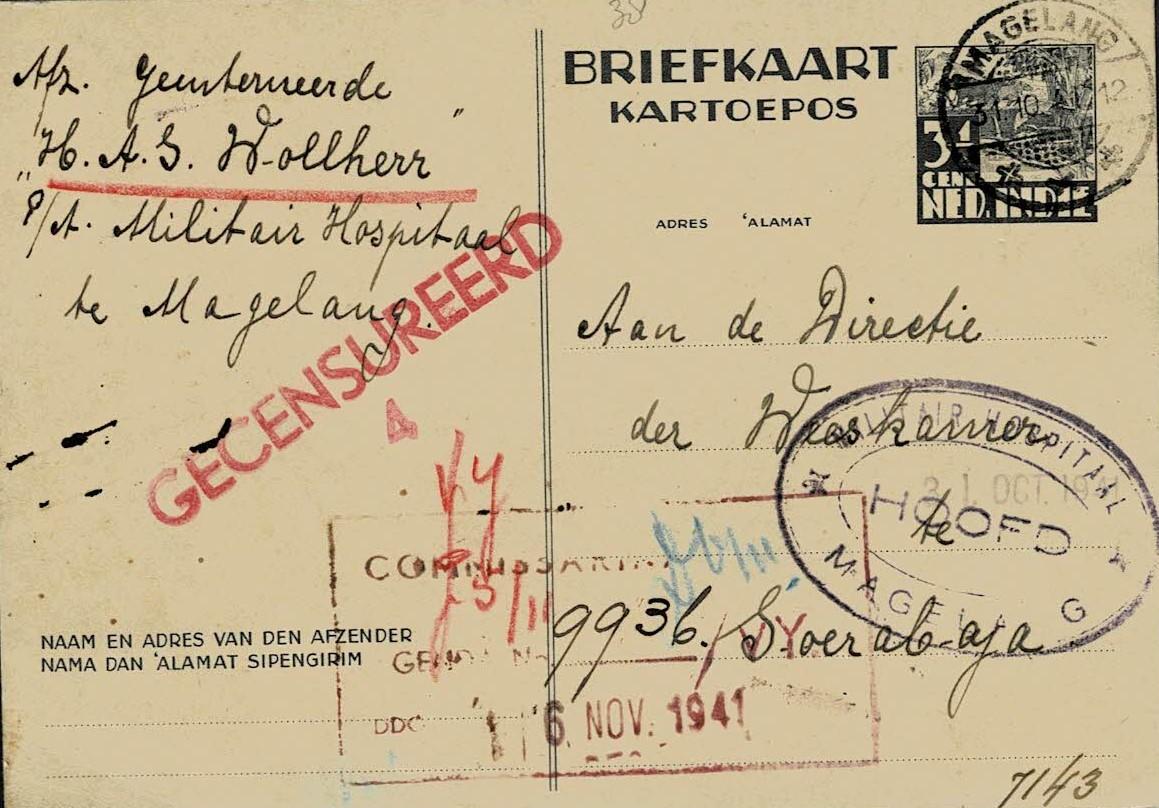 38
Afz. Geinterneerde
"H. A. G. Wollherr"
P/A. Militair Hospitaal
te Magelang.
GECENSUREERD
4
NAAM EN ADRES VAN DEN AFZENDER
NAMA DAN 'ALAMAT SIPENGIRIM
BRIEFKAART
KARTOEPOS
MAGELANG
31.10.41.12
CENT
NED. INDIE
ADRES 'ALAMAT
Aan de Directie
der Weeskamer
te
Soerabaja
MILITAIR HOSPITAAL
31 OCT. 1941
HOOFD
MAGELANG
VY
25/11
9936. / VY.
6 NOV. 1941
7143